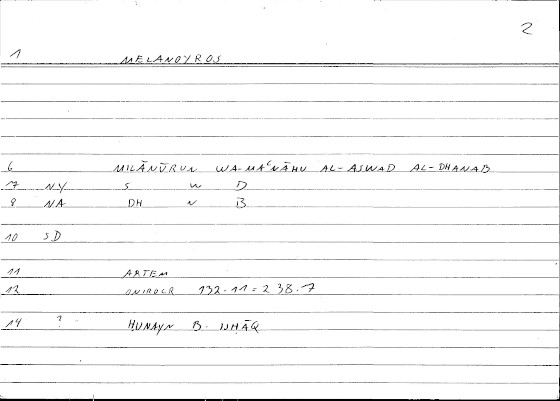 2
1 MELANOYROS
6 MILĀNŪRUN WA-MAʿNĀHU AL-ASWAD AL-DHANAB
7 NY S W D
8 NA DH N B
10 SD
11 ARTEM
12 ONIROCR 132.11 = 238.7
14 ? HUNAYN B. ISḤĀQ